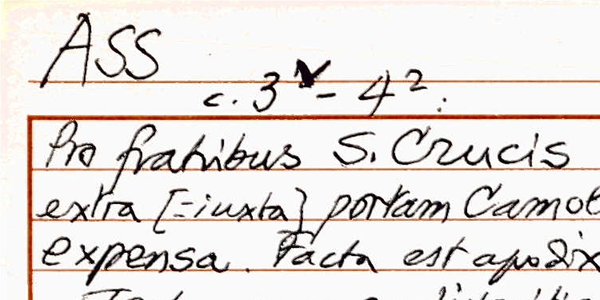 ASS
c. 3v - 42:
Pro fratribus S. Crucis
extra [=iuxta] portam Camol
expensa. Facta est apodix